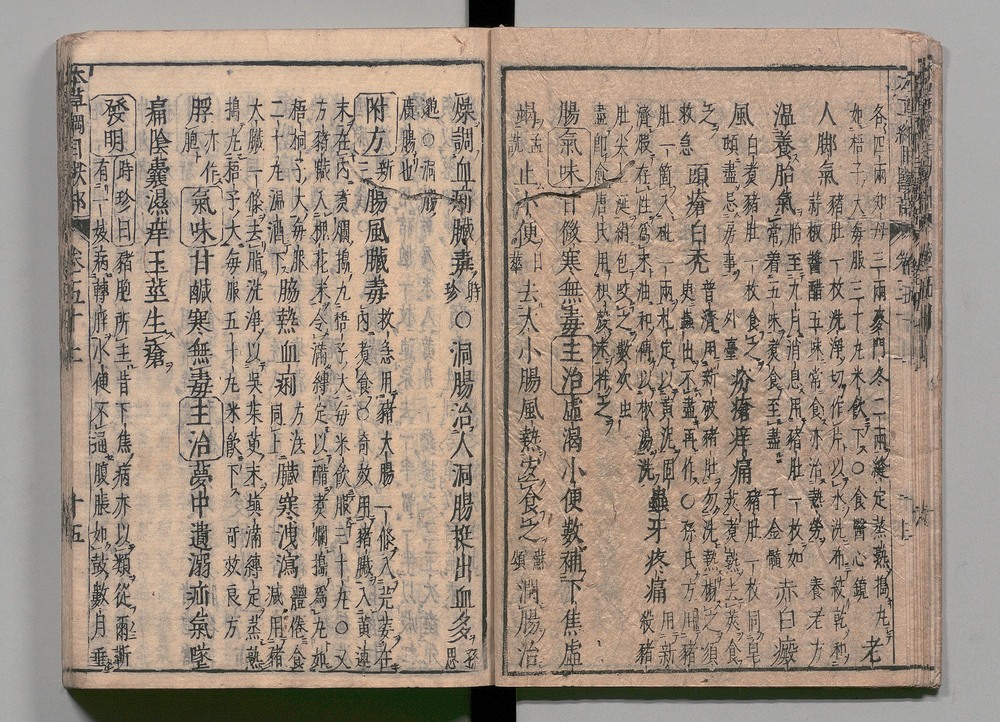 各四兩知母三兩麥門冬二兩縫定蒸熟搗丸
如梧子大每服三十丸米飲下○食醫心鏡 老
人脚氣 猪肚一枚洗淨切作片以水洗布絞乾和
蒜椒醬醋五味常食亦治熱勞 養老方
溫養胎氣 胎至九月消息用猪肚一枚如
常着五味煮食至盡 千金髓 赤白癜
風 白煮猪肚一枚食之
頓盡忌房事 外臺 疥瘡痒痛 猪肚一枚同皂
莢煮熟去莢食
之 救急 頭瘡白禿 普濟用新破猪肚勿洗熱搨之須
臾蟲出不盡再作○孫氏方用新猪
肚一箇入砒一兩扎定以黄泥固
濟煅存性為末油和傅以椒湯洗 蟲牙疼痛 殺猪
肚尖上涎絹包咬之數次虫
盡即愈唐氏用枳殻末拌之
腸氣味甘微寒無毒主治虛渴小便數補下焦虛
竭孟詵止小便日華去大小腸風熱宜食之蘇頌潤腸治
燥調血痢臟毒時珍○洞腸治人洞腸挺出血多孫思
邈○洞腸
廣腸也
附方新三 腸風臟毒 救急用猪大腸一條入芫荽在
內煮食○奇效用猪臟入黄連
末在內煮爛搗丸梧子大每米飲服三十丸○又
方猪臟入槐花末令滿縛定以醋煮爛搗為丸如
梧桐子大每服
二十丸温酒下 脇熱血痢 方法
同上 臟寒洩瀉 體倦食
減用猪
大臟一條去脂洗淨以吳茱萸末塡滿縛定蒸熟
搗丸梧子大每服五十丸米飲下 奇效良方
脬亦作胞 氣味甘鹹寒無毒主治夢中遺溺疝氣墜
痛陰囊濕痒玉莖生瘡
發明 時珍曰猪胞所主皆下焦病亦以類從爾蘄
有一妓病轉脬水便不通腹脹如鼓數月垂
本草綱目獸部 卷五十上 十五